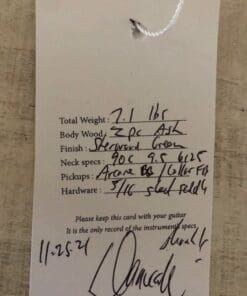 Total Weight : 7.1 lbs
Body Wood, 2pc Ash
Finish : Sherwood Green
Neck specs : 90c 9.5 6125
Pickups : Arcane
Hardware : 5/16 steel
Please keep this card with your guitar
It is the only record of the instruments specs.
11-25-21